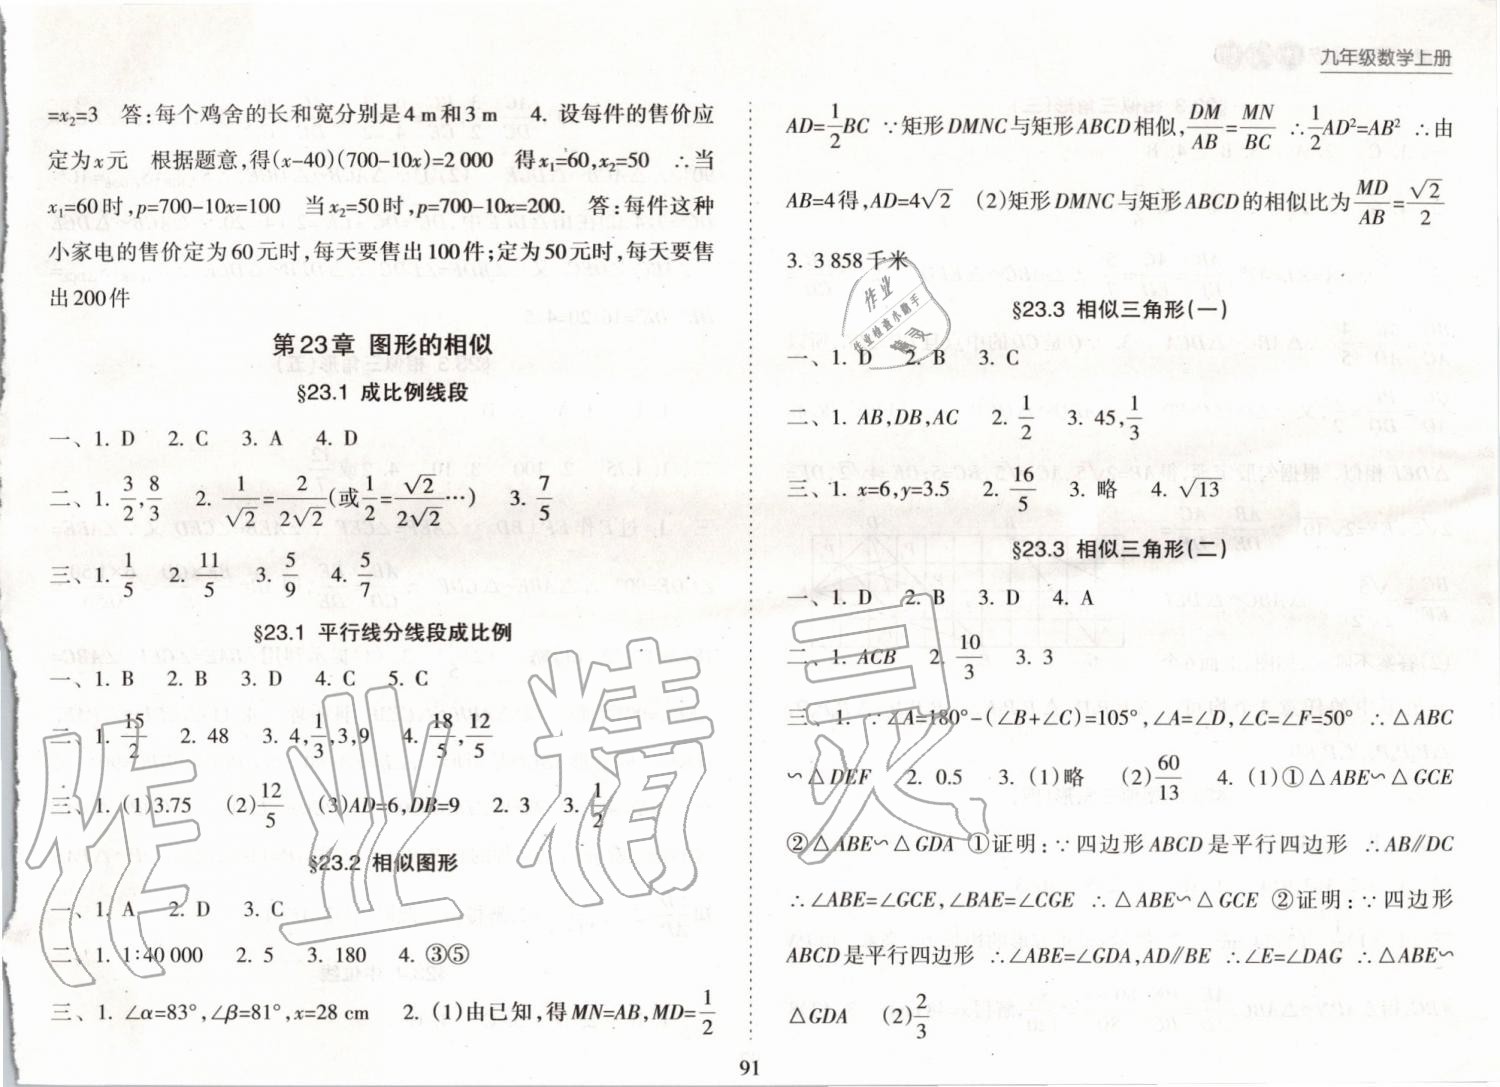 九年级数学上册
=x₂=3　答:每个鸡舍的长和宽分别是4 m和3 m　4. 设每件的售价应
定为x元　根据题意,得(x-40)(700-10x)=2 000　得x₁=60,x₂=50　∴当
x₁=60时,p=700-10x=100　当x₂=50时,p=700-10x=200.　答:每件这种
小家电的售价定为60元时,每天要售出100件;定为50元时,每天要售
出200件
第23章 图形的相似
§23.1 成比例线段
一、1. D　2. C　3. A　4. D
二、1. 3/2,8/3　2. 1/√2=2/(2√2)(或1/2=√2/(2√2)…)　3. 7/5
三、1. 1/5　2. 11/5　3. 5/9　4. 5/7
§23.1 平行线分线段成比例
一、1. B　2. B　3. D　4. C　5. C
二、1. 15/2　2. 48　3. 4,1/3,3,9　4. 18/5,12/5
三、1. (1)3.75　(2)12/5　(3)AD=6,DB=9　2. 3　3. 1/2
§23.2 相似图形
一、1. A　2. D　3. C
二、1. 1∶40 000　2. 5　3. 180　4. ③⑤
三、1. ∠α=83°,∠β=81°,x=28 cm　2. (1)由已知,得MN=AB,MD=1/2
AD=1/2BC ∵矩形DMNC与矩形ABCD相似,DM/AB=MN/BC ∴1/2AD²=AB² ∴由
AB=4得,AD=4√2　(2)矩形DMNC与矩形ABCD的相似比为MD/AB=√2/2
3. 3 858千米
§23.3 相似三角形(一)
一、1. D　2. B　3. C
二、1. AB,DB,AC　2. 1/2　3. 45,1/3
三、1. x=6,y=3.5　2. 16/5　3. 略　4. √13
§23.3 相似三角形(二)
一、1. D　2. B　3. D　4. A
二、1. ACB　2. 10/3　3. 3
三、1. ∵∠A=180°-(∠B+∠C)=105°,∠A=∠D,∠C=∠F=50° ∴△ABC
∽△DEF　2. 0.5　3. (1)略　(2)60/13　4. (1)①△ABE∽△GCE
②△ABE∽△GDA ①证明:∵四边形ABCD是平行四边形 ∴AB∥DC
∴∠ABE=∠GCE,∠BAE=∠CGE ∴△ABE∽△GCE ②证明:∵四边形
ABCD是平行四边形 ∴∠ABE=∠GDA,AD∥BE ∴∠E=∠DAG ∴△ABE∽
△GDA　(2)2/3
91
作业
作业检查小助手
精灵
作业精灵